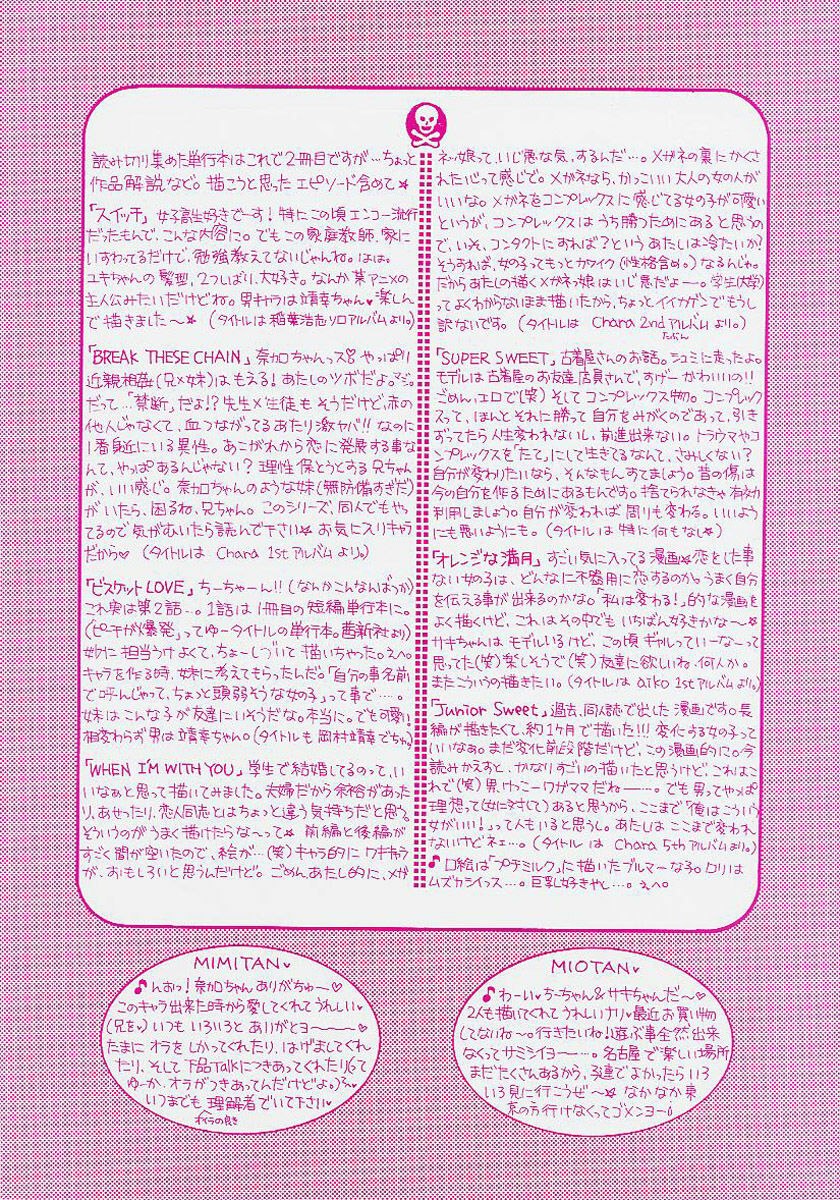 読み切り集めた単行本はこれで2冊目ですが…ちょっと
作品解説など。描こうと思ったエピソード含めて☆
「スイッチ」女子高生好きでーす!特にこの頃エンコー流行
だったもんで、こんな内容に。でもこの家庭教師、家に
いすわってるだけで、勉強教えてないじゃんね。ははは。
ユキちゃんの髪型、2つしばり、大好き。なんか某アニメの
主人公みたいだけどね。男キャラは靖幸ちゃん♥楽しん
で描きました〜☆(タイトルは稲葉浩志ソロアルバムより。)
「BREAK THESE CHAIN」奈加ちゃんっス!! やっぱり
近親相姦(兄×妹)はもえる!あたしのツボだよ。マジ。
だって…「禁断」だよ!?先生×生徒もそうだけど、赤の
他人じゃなくて、血つながってるあたり激ヤバ!!なのに
1番身近にいる異性。あこがれから恋に発展する事な
んて、やっぱあるんじゃない?理性保とうとする兄ちゃん
が、いい感じ。奈加ちゃんのような妹(無防備すぎだ)
がいたら、困るね、兄ちゃん。このシリーズ、同人でもや
てるので気がむいたら読んで下さい☆お気に入りキャラ
だから♡(タイトルは Chara 1stアルバムより。)
「ビスケットLOVE」ちーちゃーん!!(なんかこんなんばっか)
これ実は第2話…。1話は1冊目の短編単行本に。
(「ピーチが爆発」ってゆータイトルの単行本。茜新社より)
妙に担当うけよくて、ちょーしづいて描いちゃった。えへ。
キャラを作る時、妹に考えてもらったんだ。「自分の事名前
で呼んじゃって、ちょっと頭弱そうな女の子」って事で…。
妹はこんな子が友達にいそうだな。本当に。でも可愛い。
相変わらず男は靖幸ちゃん。(タイトルも岡村靖幸でちゅ)
「WHEN I'M WITH YOU」学生で結婚してるのって、い
いなぁと思って描いてみました。夫婦だから余裕があった
り、あせったり。恋人同志とはちょっと違う気持ちだと思う。
そういうのがうまく描けたらな〜って☆ 前編と後編が
すごく間が空いたので、絵が…(笑)キャラ的にワキキャラ
が、おもしろいと思うんだけど。ごめん、あたし的に、メガ
ネっ娘って、いじ悪な気、するんだ…。メガネの裏にかくさ
れた心って感じで。メガネなら、かっこいい大人の女の人が
いいな。メガネをコンプレックスに感じてる女の子が可愛い
というが、コンプレックスはうち勝つためにあると思うの
で、いっそ、コンタクトにすれば?というあたしは冷たいか?
そうすれば、女の子ってもっとカワイク(性格含め。)なるんじゃ。
だからあたしの描くメガネっ娘はいじ悪だよー。学生(大学)
ってよくわからないまま描いたから、ちょっとイイカゲンでもうし
訳ないです。(タイトルは Chara 2ndアルバムより。)
たぶん
「SUPER SWEET」古着屋さんのお話。シュミに走ったよ。
モデルは古着屋のお友達店員さんで、すげーかわいいの!!
ごめん、エロで(笑)そしてコンプレックス物。コンプレック
スって、ほんとそれに勝って自分をみがくのであって、引き
ずってたら人生変われないし、前進出来ない。トラウマやコ
ンプレックスを「たて」にして生きてるなんて、さみしくない?
自分が変わりたいなら、そんなもんすてましょう。昔の傷は
今の自分を作るためにあるもんです。捨てられなきゃ有効
利用しましょう。自分が変われば周りも変わる。いいよう
にも悪いようにも。(タイトルは特に何もなし☆)
「オレンジな満月」すごい気に入ってる漫画☆恋をした事
ない女の子は、どんなに不器用に恋するのか。うまく自分
を伝える事が出来るのかな。「私は変わる!」的な漫画を
よく描くけど、これはその中でもいちばん好きかな〜☆
サキちゃんはモデルいるけど、この頃ギャルっていーな〜って
思ってた(笑)楽しそうで(笑)友達に欲しいね。何人か。
またこういうの描きたい。(タイトルは aiko 1stアルバムより。)
「Junior Sweet」過去、同人誌で出した漫画です。長
編が描きたくて、約1ヶ月で描いた!!!変化する女の子って
いいなぁ。まだ変化前段階だけど、この漫画的に。今
読みかえすと、かなりすごいの描いたと思うけど、これはこ
れで(笑)男、けっこーワガママだねー…。でも男ってやっぱ
理想って(女に対して)あると思うから、ここまで「俺はこういう
女がいい!」って人もいると思うし。あたしはここまで変われ
ないけどネェ…。(タイトルは Chara 5thアルバムより。)
♪口絵は「プチミルク」に描いたブルマーな子。ロリは
ムズカシイっス…。巨乳好きやし…。えへ。
MIMITAN♥
♪んおっ!奈加ちゃんありがちゅ〜♡
このキャラ出来た時から愛してくれてうれしい♥
(兄を♥)いつもいろいろとありがとヨ〜〜♡
たまにオラをしかってくれたり、はげましてくれ
たり、そして下品Talkにつきあってくれたりって
ゆーか、オラがつきあってんだけどよ。)ろ♥
いつまでも理解者でいて下さい♥
オイラの良き
MIOTAN♥
♪わーい♥ちーちゃん&サキちゃんだ〜♡
2人も描いてくれてうれしいナリ♥最近お買い物
してないね〜。行きたいね!遊ぶ事全然出来
なくってサミシイヨー…。名古屋で楽しい場所
まだたくさんあるから、3連でよかったらいろ
いろ見に行こうぜ〜☆なかなか東
京の方行けなくってゴメンヨー